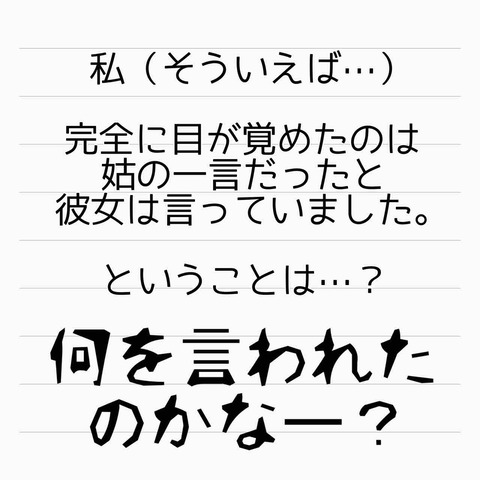 私（そういえば…）
完全に目が覚めたのは
姑の一言だったと
彼女は言っていました。
ということは…？
何を言われた
のかなー？